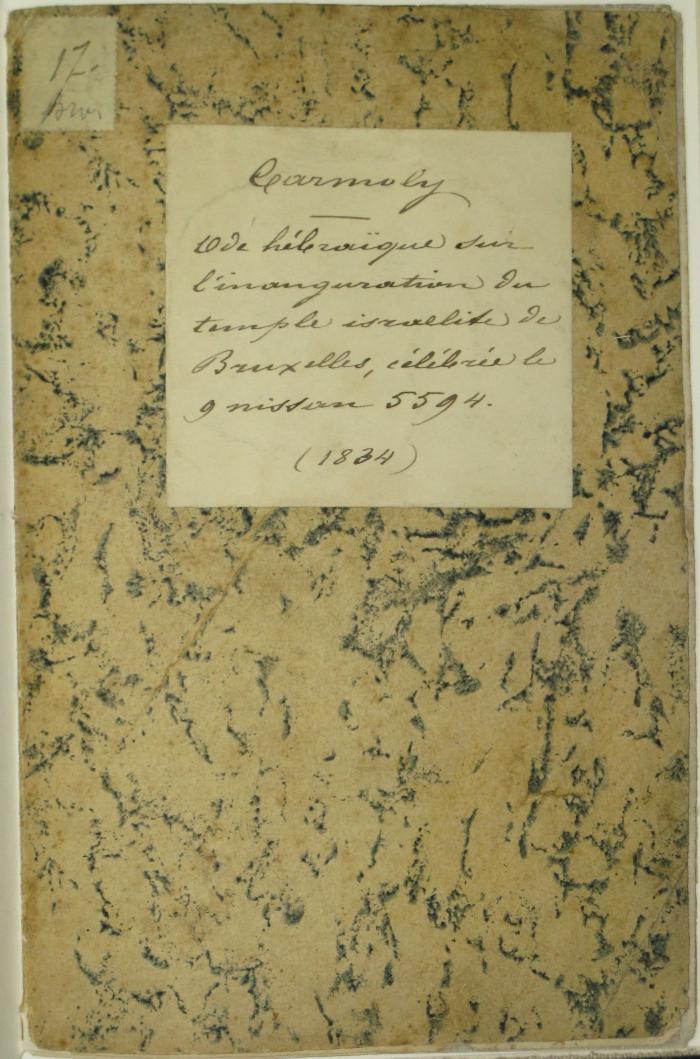 17.
Carmoly
Ode hébraïque sur
l'inauguration du
temple israelite de
Bruxelles, célébrée le
9 nissan 5594.
(1834)